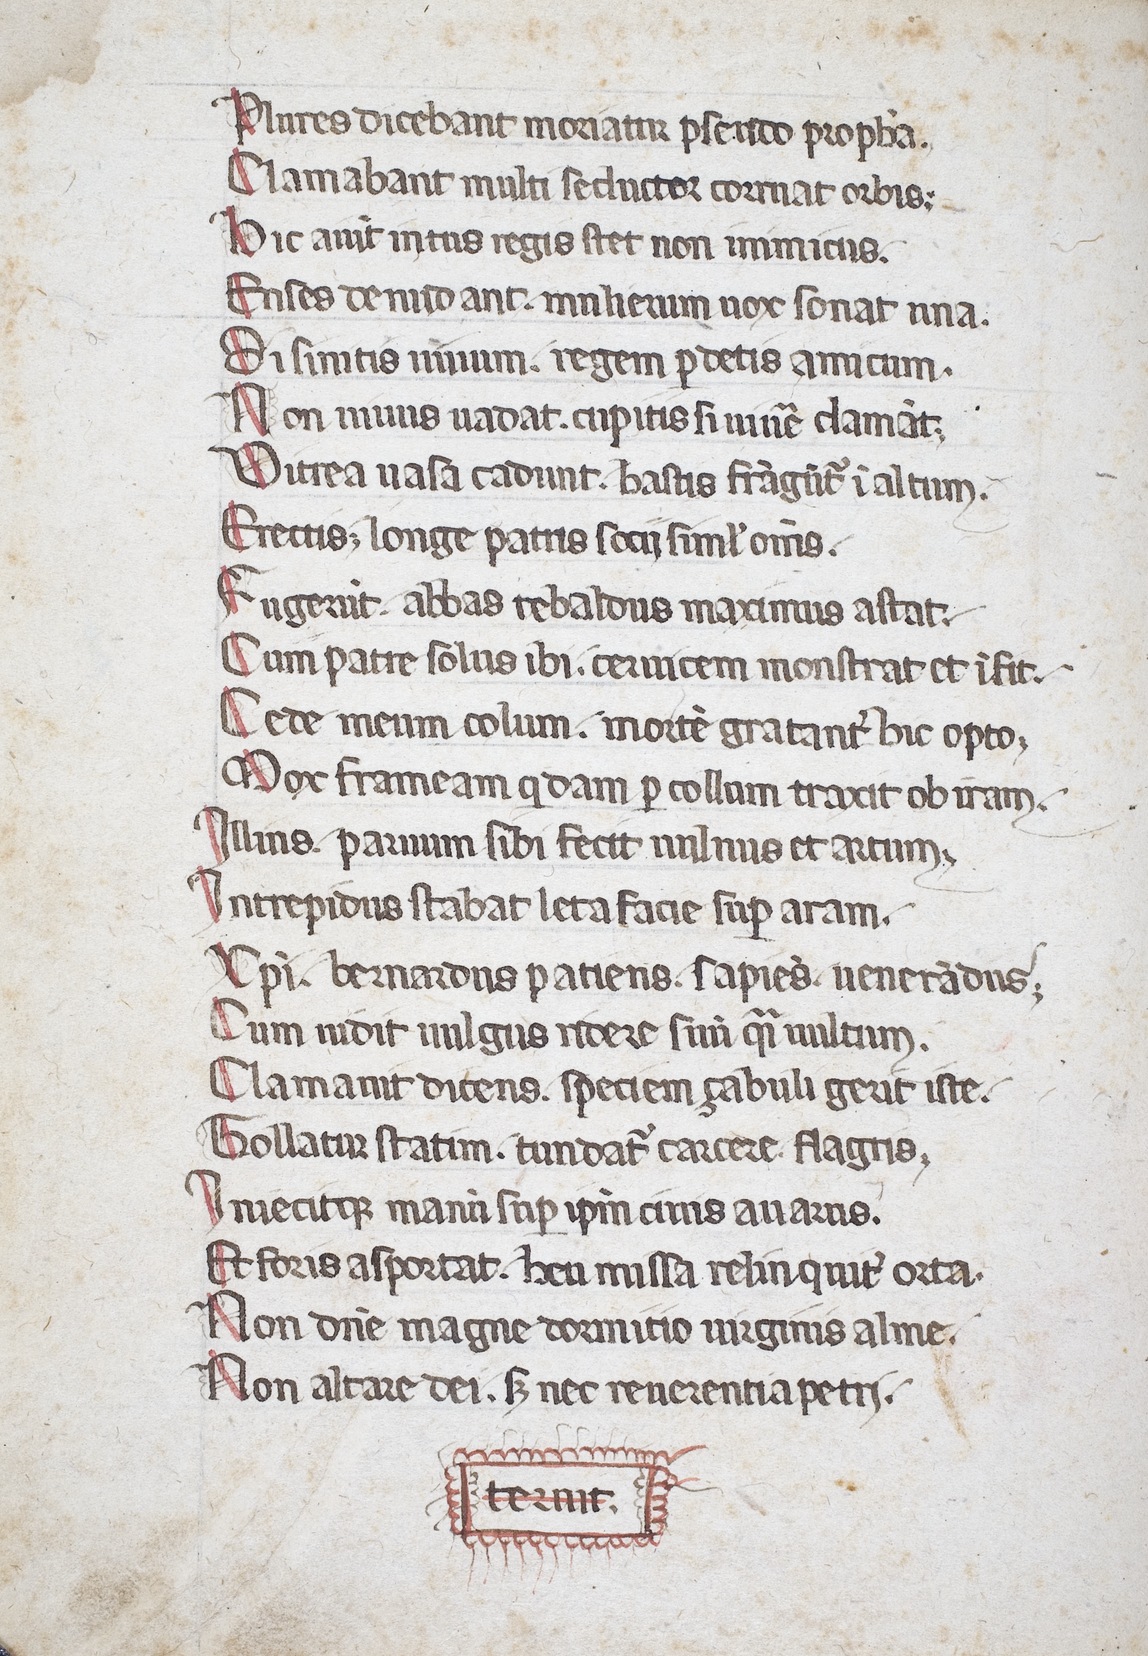 Plures dicebant moriatur pseudo propħa.
Clamabant multi seductor corruat orbis;
Hic auit intus regis stet non inimicus.
Enses denudant. mulierum uox sonat una.
Si sinitis uiuum. regem ꝑdetis amicum.
Non uiuus uadat. cupitis si uiuē̃ clamāt;
Vitrea uasa cadunt. hastis frāgūt᷑ ī altum.
Erectis; longe patris socij simil̕ om̄s.
Fugerūt. abbas rebaldus maximus astat.
Cum patre solus ibi. ceruicem monstrat et īfit.
Cede meum colum. mortē gratant᷑ hic opto;
Mox frameam q̇dam ꝑ collum traxit ob iram.
Illius. paruum sibi fecit uulnus et artum;
Intrepidus stabat leta facie suꝑ aram.
Xp̄i. bernardus patiens. sapiēs. uenerādus;
Cum uidit uulgus ridere sūū qͣ̄i uultum.
Clamauit dicens. speciem çabuli gerit iste.
Tollatur statim. tundat᷑ carcere. flagris;
Iniecitqꝫ manū suꝑ ip̄m ciuis auarus.
Et foris asportat. heu missa relinquit᷑ orta.
Non dn̄e magne dormitio uirginis alme.
Non altare dei. sꝫ nec reuerentia petri.
terruit.